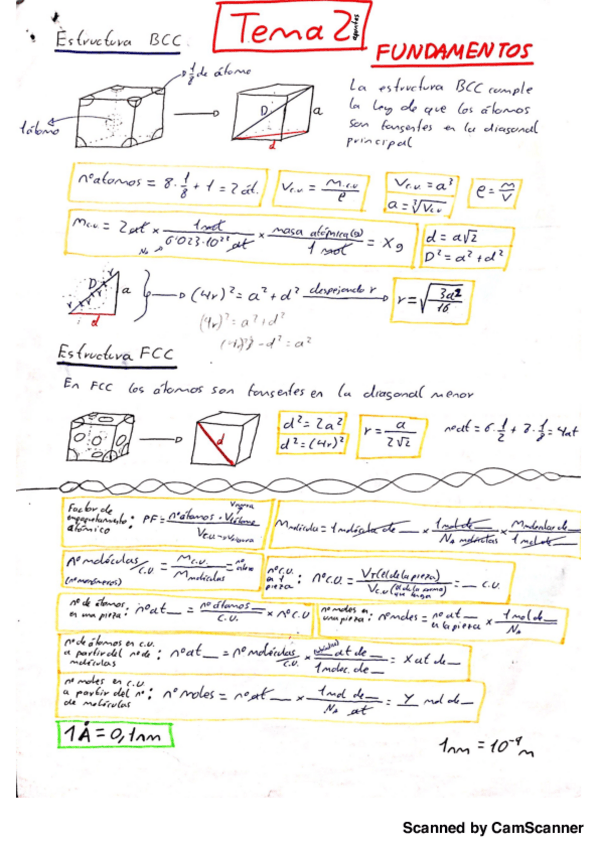 Tema 2
apuntes
FUNDAMENTOS
Estructura BCC
1/8 de átomo
1 átomo
D
a
d
La estructura BCC cumple
la Ley de que los átomos
son tangentes en la diagonal
principal
nº átomos = 8 · 1/8 + 1 = 2 át.
Vc.u = Mc.u / ρ
Vc.u = a³
a = ∛Vc.u
ρ = m/V
Mc.u = 2 at × 1 mol / 6'023·10²³ at × masa atómica(g) / 1 mol = X g
NA
d = a√2
D² = a² + d²
D
a
d
(4r)² = a² + d² despejando r
r = √(3a²/16)
(4r)² = a² + d²
(4r)² - d² = a²
Estructura FCC
En FCC los átomos son tangentes en la diagonal menor
d
d² = 2a²
d² = (4r)²
r = a / 2√2
nº at = 6 · 1/2 + 8 · 1/8 = 4 at
Factor de
empaquetamiento : PF = nº átomos · Vátomo / Vc.u
atómico
Mmolécula = 1 molécula de __ × 1 mol de __ / NA moléculas × Mmolecular de __ / 1 mol de __
nº moléculas / C.U = Mc.u / Mmoléculas
(monómeros)
nº C.U.
en 1
pieza : nº C.U. = VT (el de la pieza) / Vc.u = __ C.U.
nº de átomos
en una pieza : nº at __ = nº átomos / C.U × nº C.U
nº moles en
una pieza : nº moles = nº at __ en la pieza × 1 mol de __ / NA
nº de átomos en c.u
a partir del nº de : nº at __ = nº moléculas / C.U. × at de __ / 1 molec. de __ = X at de __
moléculas
nº moles en c.u
a partir del nº : nº moles = nº at __ × 1 mol de __ / NA at = Y mol de __
de moléculas
1Å = 0,1nm
1nm = 10⁻⁹ m
Scanned by CamScanner